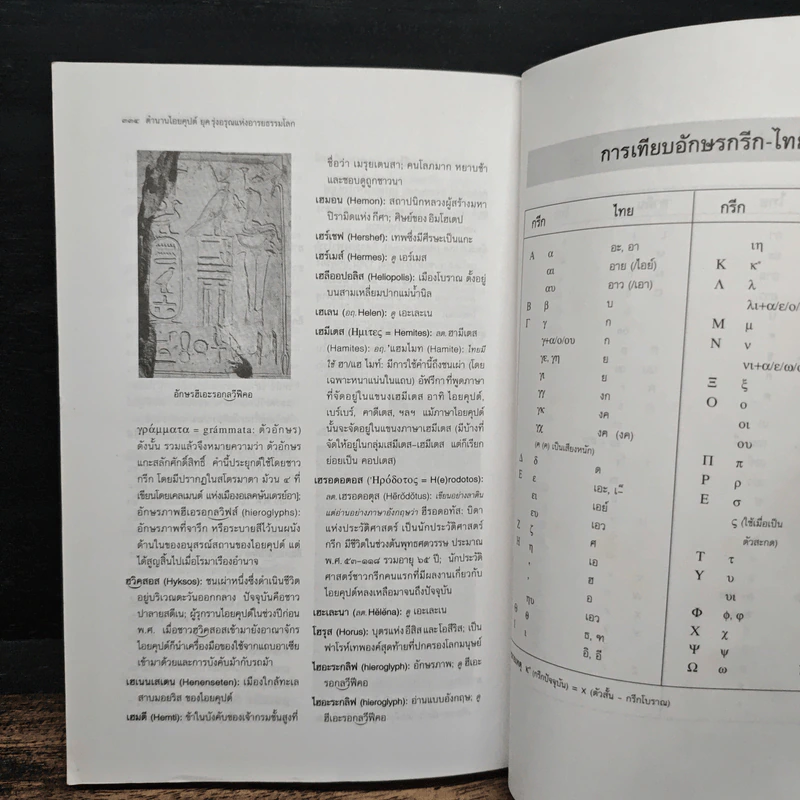 ๓๓๔ ตำนานไอยคุปต์ ยุครุ่งอรุณแห่งอารยธรรมโลก
อักษรฮีเอะรอกลวีฟิคอ
γράμματα = grámmata: ตัวอักษร)
ดังนั้น รวมแล้วจึงหมายความว่า ตัวอักษร
แกะสลักศักดิ์สิทธิ์ คำนี้ประยุกต์ใช้โดยชาว
กรีก โดยมีปรากฏในสโตรมาตา ม้วน ๔ ที่
เขียนโดยเคลเมนต์ แห่งเมืองอเลคษันเดรย์อา];
อักษรภาพฮีเอรอกลวิฟส์ (hieroglyphs):
อักษรภาพที่จารึก หรือระบายสีไว้บนผนัง
ด้านในของอนุสรณ์สถานของไอยคุปต์ แต่
ได้สูญสิ้นไปเมื่อโรมาเรืองอำนาจ
ฮุวิคสอส (Hyksos): ชนเผ่าหนึ่งซึ่งดำเนินชีวิต
อยู่บริเวณตะวันออกกลาง ปัจจุบันคือชาว
ปาลายสตีเน; ผู้รุกรานไอยคุปต์ในช่วงปีก่อน
พ.ศ. เมื่อชาวฮุวิคสอสเข้ามายังอาณาจักร
ไอยคุปต์ก็นำเครื่องมือของใช้จากแถบอาเซีย
เข้ามาด้วยและการบังคับม้ากับรถม้า
เฮเนนเสเตน (Henenseten): เมืองใกล้ทะเล
สาบมอยริส ของไอยคุปต์
เฮมตี (Hemti): ข้าในบังคับของเจ้ากรมชั้นสูงที่
ชื่อว่า เมรุยเตนสา; คนโลภมาก หยาบช้า
และชอบดูถูกชาวนา
เฮมอน (Hemon): สถาปนิกหลวงผู้สร้างมหา
ปิรามิดแห่ง กีศา; ศิษย์ของ อิมโฮเตป
เฮร์เชฟ (Hershef): เทพซึ่งมีศีรษะเป็นแกะ
เฮร์เมส์ (Hermes): ดู เอร์เมส
เฮลีออปอลิส (Heliopolis): เมืองโบราณ ตั้งอยู่
บนสามเหลี่ยมปากแม่น้ำนีล
เฮเลน (อฤ. Helen): ดู เอะเละเน
เฮมีเตส (Ημιτες = Hemites): ลต. ฮามีเตส
(Hamites): อฤ. 'แฮมไมท (Hamite): ไทยมี
ใช้ ฮา/แฮ ไมท์: มีการใช้คำนี้ถึงชนเผ่า (โดย
เฉพาะหนาแน่นในแถบ) อัฟรีกา ที่พูดภาษา
ที่จัดอยู่ในแขนงเฮมีเตส อาทิ ไอยคุปต์,
เบร์เบร์, คาดีเตส, ฯลฯ แม้ภาษาไอยคุปต์
นั้นจะจัดอยู่ในแขนงภาษาเฮมีเตส (มีบ้างที่
จัดให้อยู่ในกลุ่มเสมีเตส-เฮมีเตส แต่ก็เรียก
ย่อยเป็น คอปเตส)
เฮรอดอตอส (Ἡρόδοτος = H(e)rodotos):
ลต. เฮรอดอตุส (Hērŏdŏtŭs): เขียนอย่างลาติน
แต่อ่านอย่างภาษาอังกฤษว่า ฮีรอดอทัส: บิดา
แห่งประวัติศาสตร์ เป็นนักประวัติศาสตร์
กรีก มีชีวิตในช่วงต้นพุทธศตวรรษ ประมาณ
พ.ศ. ๕๓–๑๑๘ รวมอายุ ๖๕ ปี; นักประวัติ
ศาสตร์ชาวกรีกคนแรกที่มีผลงานเกี่ยวกับ
ไอยคุปต์หลงเหลือมาจนถึงปัจจุบัน
เฮเละนา (ลต. Hĕlĕna): ดู เอะเละเน
โฮรุส (Horus): บุตรแห่ง อีสิส และ โอสีริส; เป็น
ฟาโรห์เทพองค์สุดท้ายที่ปกครองโลกมนุษย์
ไฮอะระกลิฟ (hieroglyph): อักษรภาพ; ดู ฮีเอะ
รอกลวีฟิคอ
ไฮอะระกลิฟ (hieroglyph): อ่านแบบอังกฤษ; ดู
ฮีเอะรอกลวีฟิคอ
การเทียบอักษรกรีก-ไทย
กรีก ไทย กรีก
Α α อะ, อา
αι อาย (/ไอย์)
αυ อาว (/เอา)
Β β บ
Γ γ ก
γ+α/ο/ου ก
γε, γη ย
γι ย
γγ งก
γκ งค
γχ งค (งค)
(ค (ค) เป็นเสียงหนัก)
Δ δ ด
Ε ε เอะ,
ει เอย์
ευ เอว
Ζ ζ ศ
Η η เอ
ฮ
อ
ηυ เอว
Θ θ ธ, ฑ
Ι ι อิ, อี
ιη
Κ κ
Λ λ
λι+α/ε/ο/
Μ μ
Ν ν
νι+α/ε/ω/ο
Ξ ξ
Ο ο
οι
ου
Π π
Ρ ρ
Ε σ
ς (ใช้เมื่อเป็น
ตัวสะกด)
Τ τ
Υ υ
υι
Φ φ, φ
Χ χ
Ψ ψ
Ω ω
(กรีกปัจจุบัน) = x (ตัวสั้น - กรีกโบราณ)